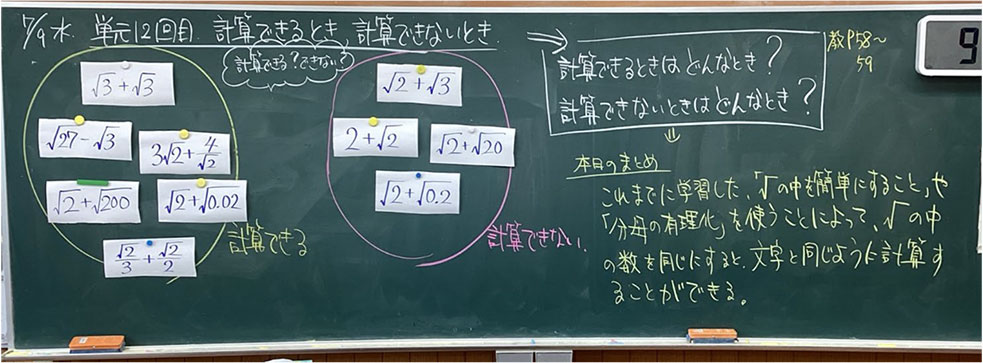 7/9 水. 単元12回目. 計算できるとき, 計算できないとき
計算できる?できない?
√3+√3
√27-√3
3√2+4/√2
√2+√200
√2+√0.02
√2/3+√2/2
計算できる
√2+√3
2+√2
√2+√20
√2+√0.2
計算できない.
⇒
計算できるときは どんなとき?
計算できないときは どんなとき?
教P58〜
59
⇓
本日のまとめ
これまでに学習した、「√の中を簡単にすること」や
「分母の有理化」を使うことによって、√の中
の数を同じにすると、文字と同じように計算す
ることができる。
9